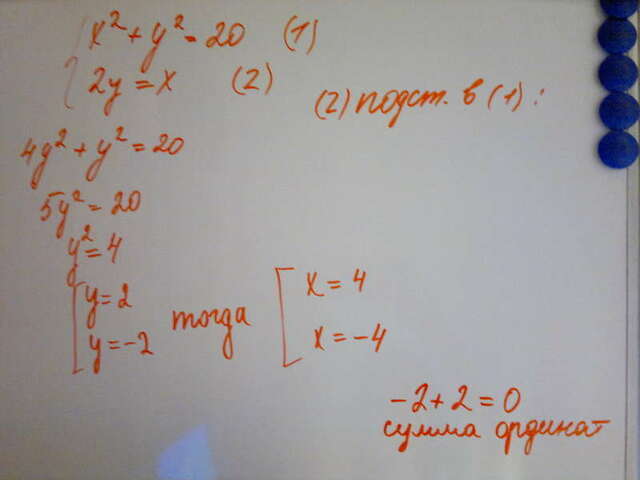 x² + y² = 20 (1)
2y = x (2)
(2) подст. в (1) :
4y² + y² = 20
5y² = 20
y² = 4
y = 2
y = -2
тогда
x = 4
x = -4
-2 + 2 = 0
сумма ординат